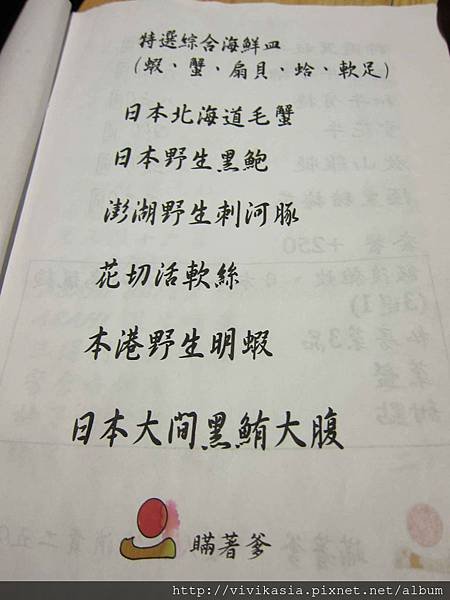 特選綜合海鮮皿
(蝦、蟹、扇貝、蛤、軟足)
日本北海道毛蟹
日本野生黑鮑
澎湖野生刺河豚
花切活軟絲
本港野生明蝦
日本大間黑鮪大腹
瞞著爹
http://vivikasia.pixnet.net/album